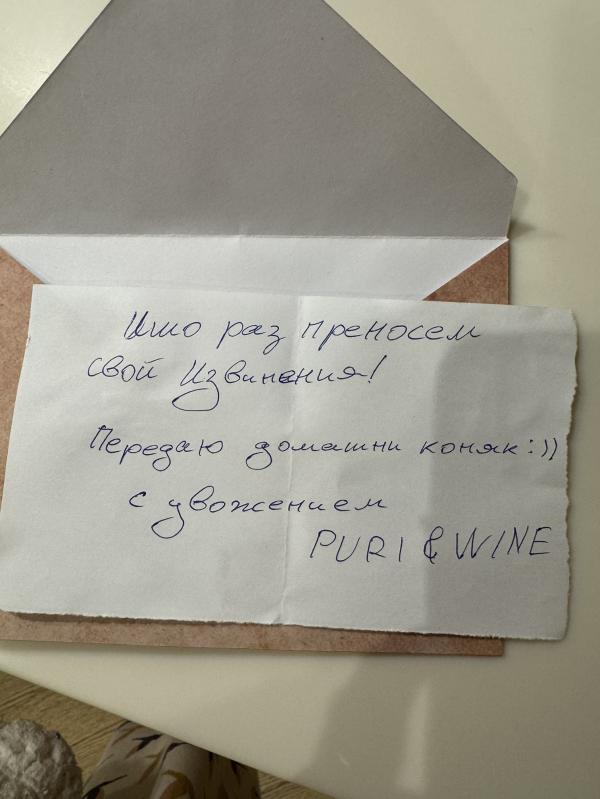 Ишо раз преносем
свой Извинения!
Передаю домашни коняк:))
с увожением
PURI & WINE